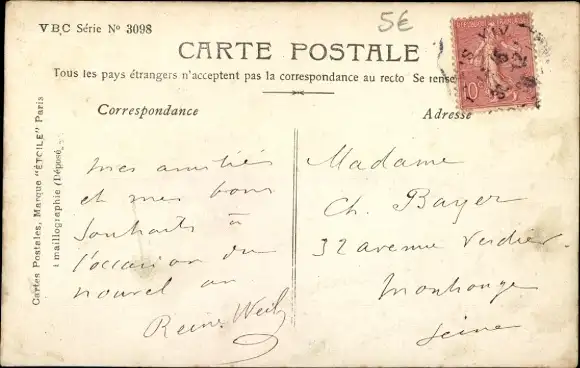 VBC Série Nº 3098
5€
CARTE POSTALE
Tous les pays étrangers n'acceptent pas la correspondance au recto Se rense
Correspondance
Adresse
10
Cartes Postales, Marque "ÉTOILE" Paris
maillographie (Déposé
Mes amitiés
et mes bons
souhaits à
l'occasion du
nouvel an
Reine Weil
Madame
Ch. Bayer
32 avenue Verdier
Montrouge
Seine